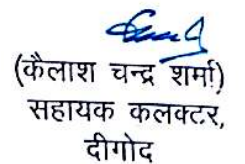 (कैलाश चन्द्र शर्मा)
सहायक कलक्टर,
दीगोद